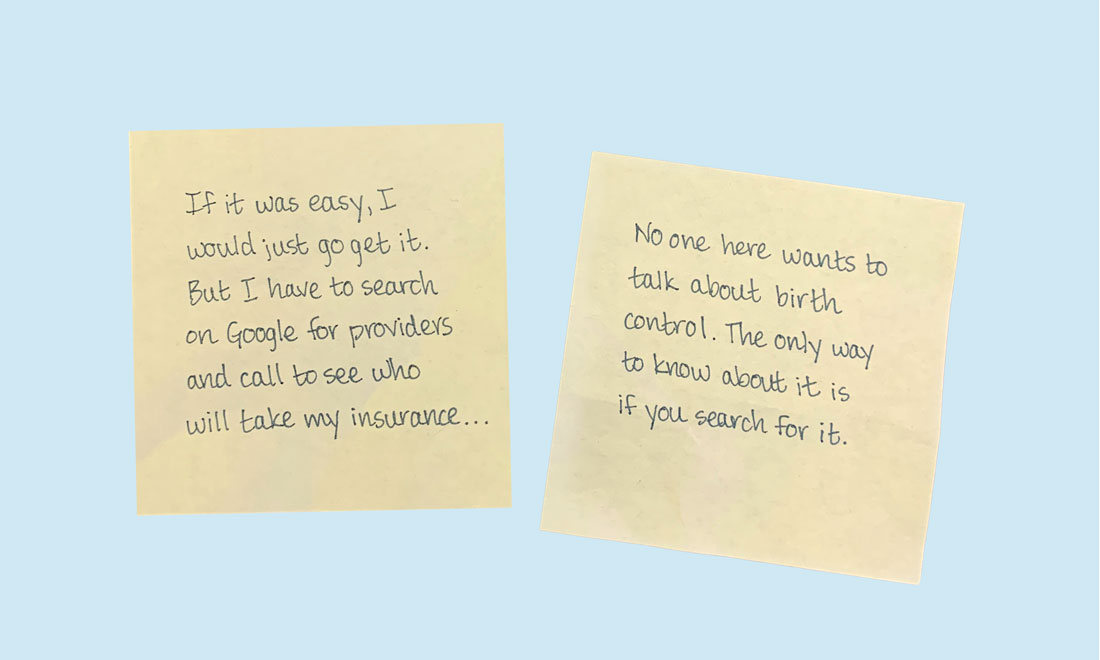 If it was easy, I
would just go get it.
But I have to search
on Google for providers
and call to see who
will take my insurance...
No one here wants to
talk about birth
control. The only way
to know about it is
if you search for it.